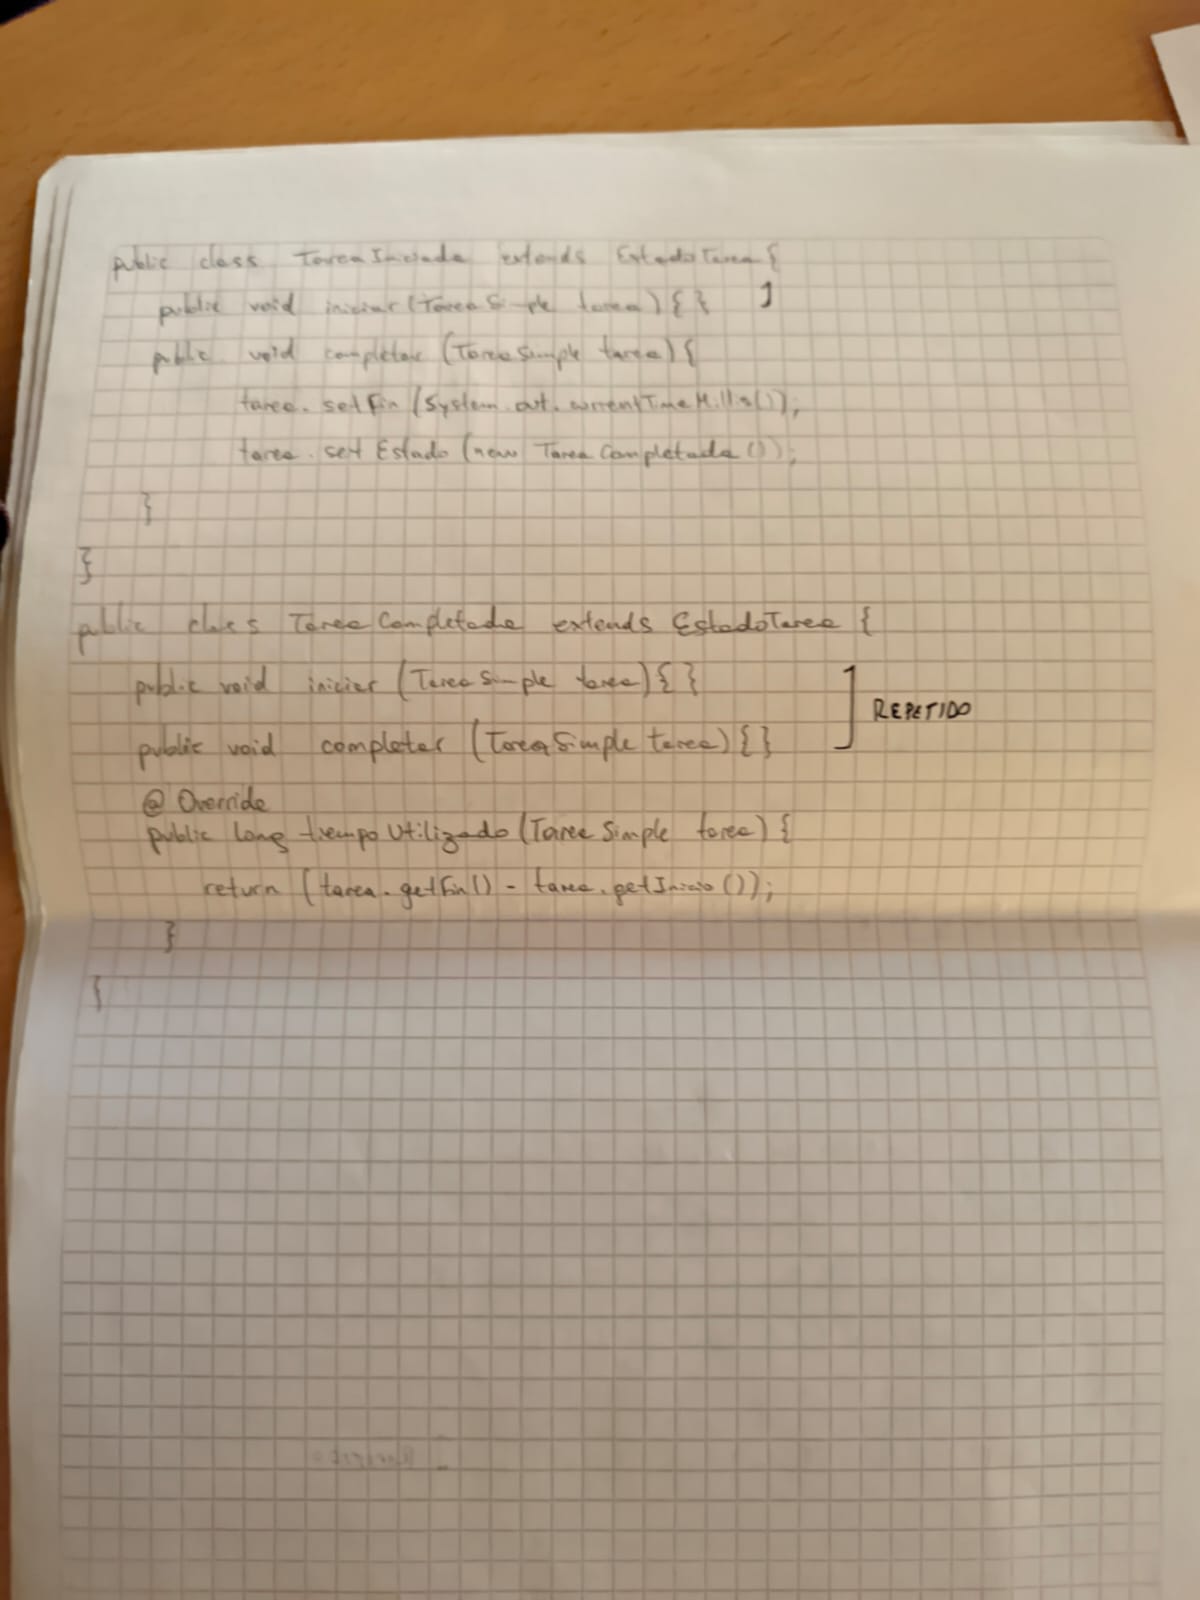 public class TareaIniciada extends EstadoTarea {
public void iniciar (TareaSimple tarea) { } ]
public void completar (TareaSimple tarea) {
tarea.setFin (System.out.currentTimeMillis());
tarea.setEstado (new TareaCompletada ());
}
}
public class TareaCompletada extends EstadoTarea {
public void iniciar (TareaSimple tarea) { }
public void completar (TareaSimple tarea) { } ] REPETIDO
@Override
public long tiempoUtilizado (TareaSimple tarea) {
return (tarea.getFin() - tarea.getInicio ());
}
{